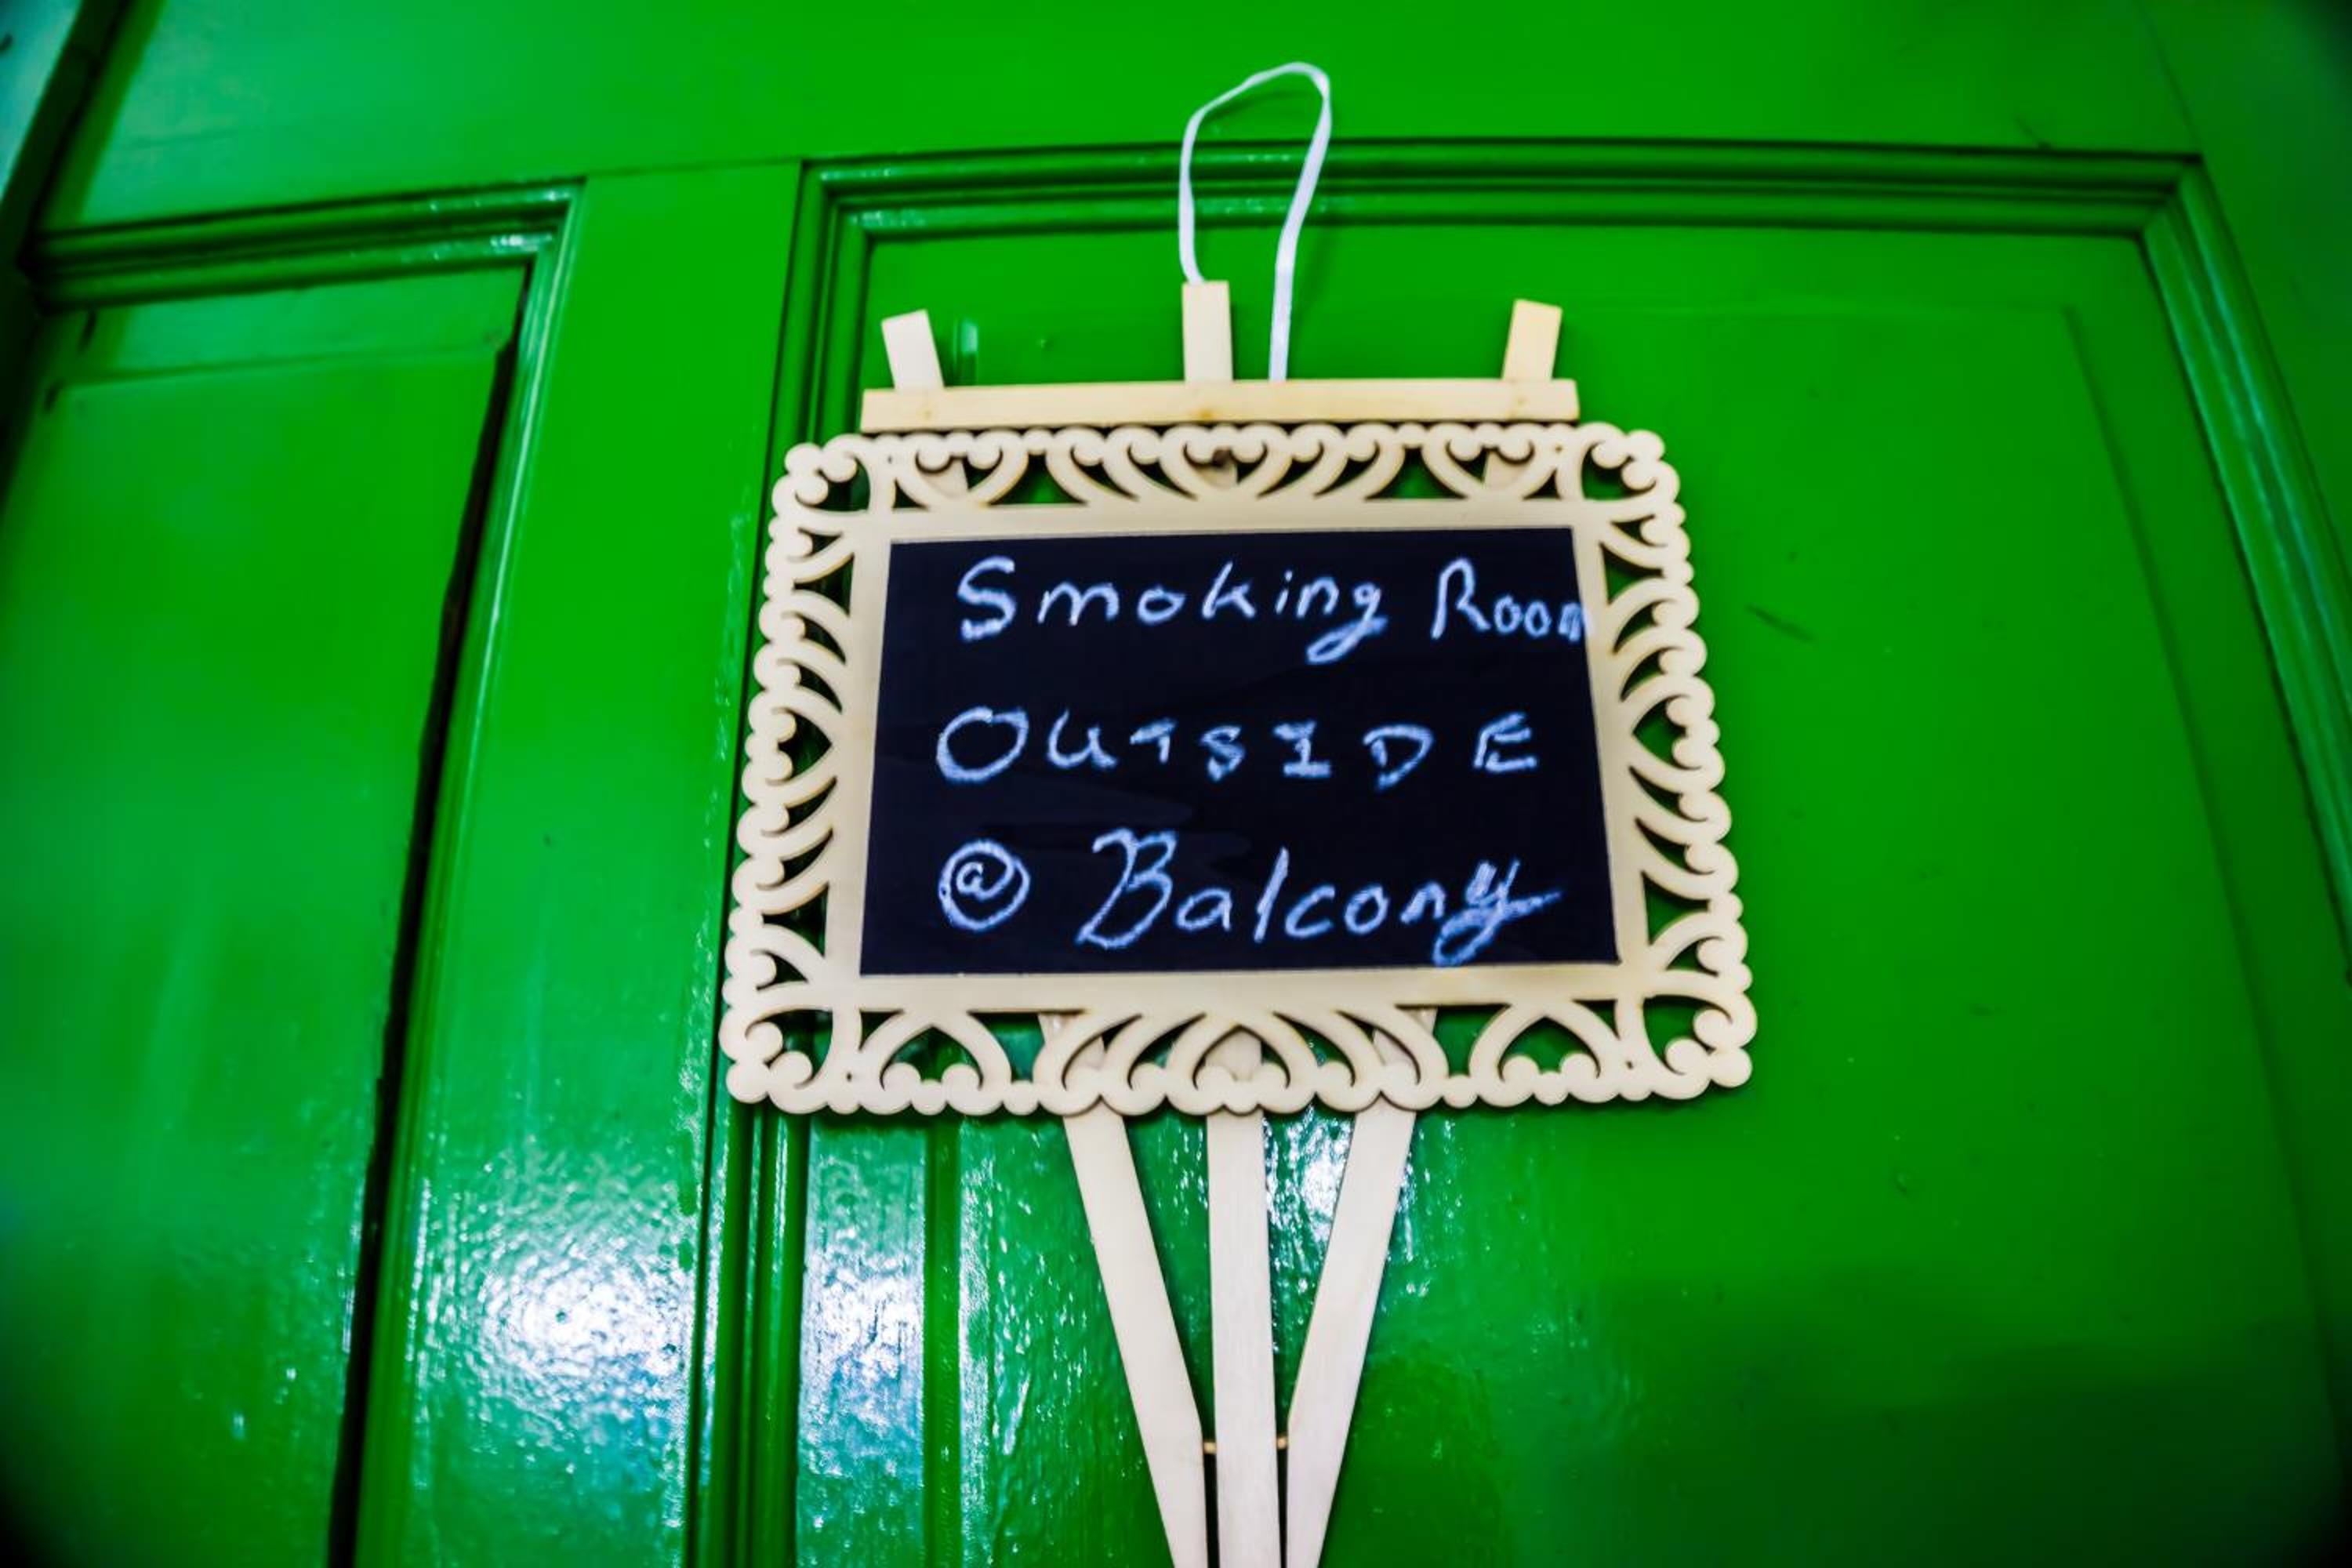 Smoking Room
OUTSIDE
@ Balcony